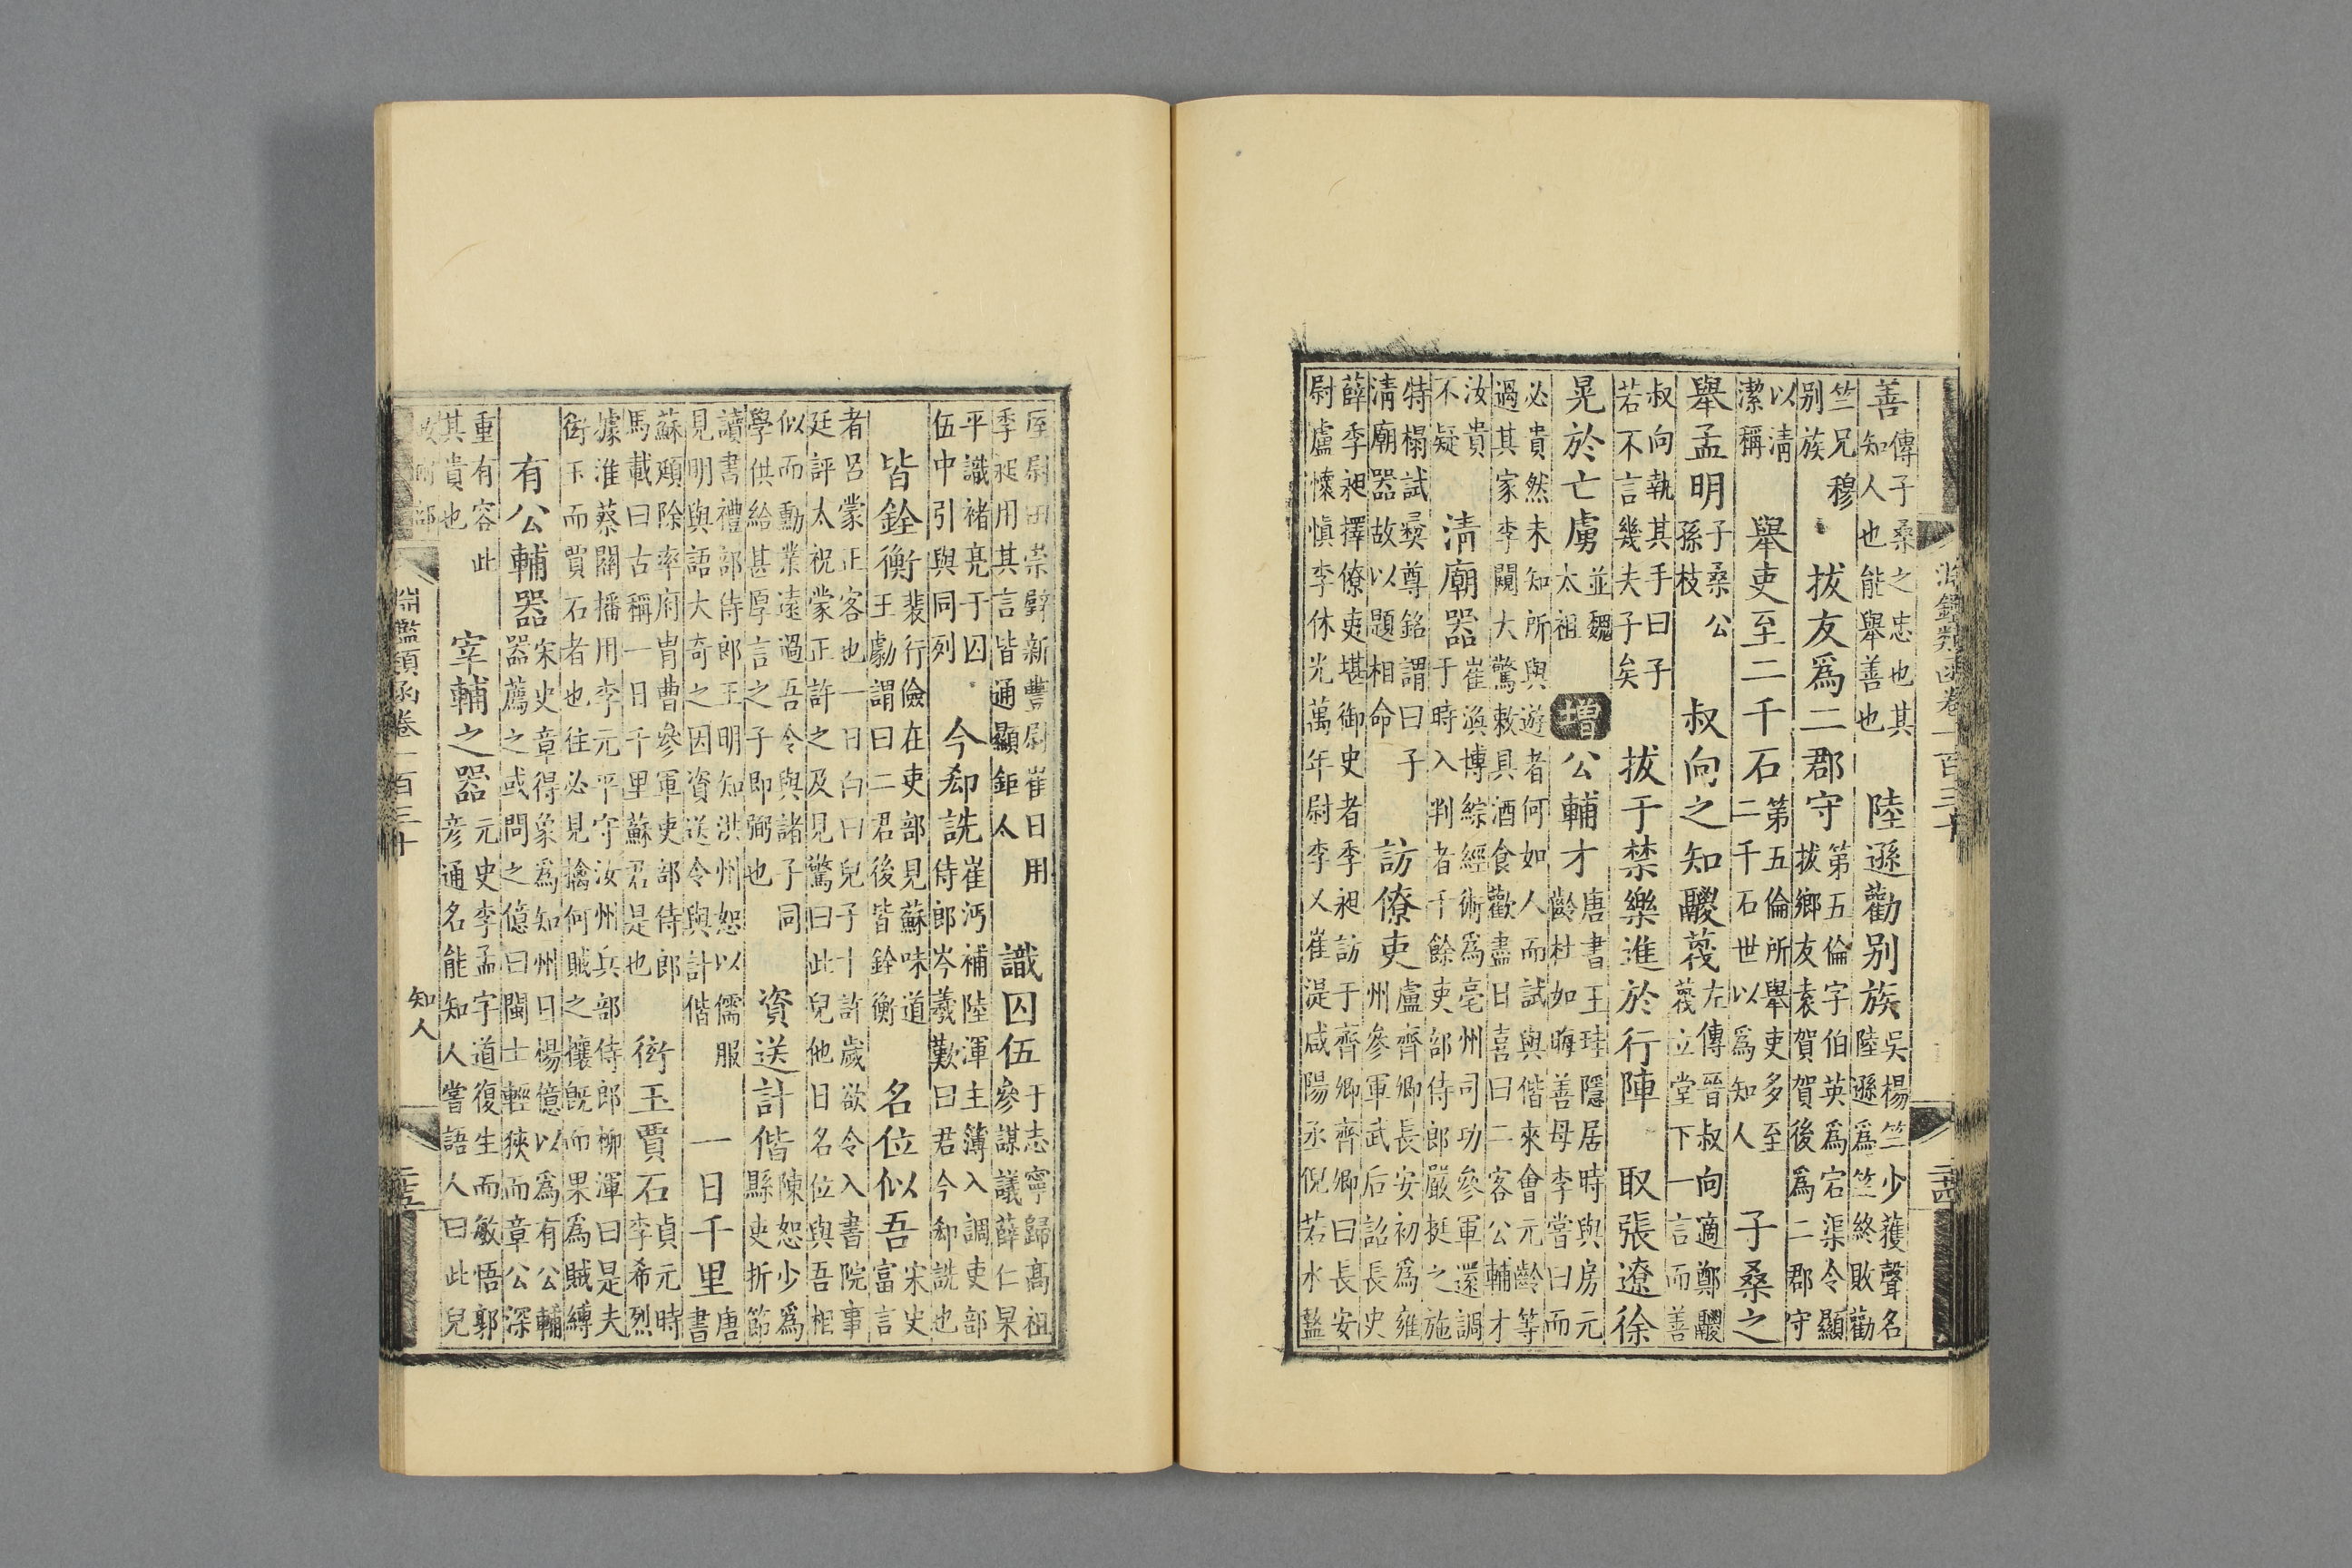 淵鑑類函卷一百三十 二十四
善傳子桑之忠也其知人也能舉善也 陸遜勸别族吳楊竺少獲聲名陸遜爲竺終敗勸
竺兄穆别族 拔友爲二郡守第五倫字伯英爲宕渠令顯拔鄉友袁賀賀後爲二郡守
以清潔稱 舉吏至二千石第五倫所舉吏多至二千石世以爲知人 子桑之
舉孟明子桑公孫枝 叔向之知鬷蔑左傳晉叔向適鄭鬷蔑立堂下一言而善
叔向執其手曰子若不言幾夫子矣 拔于禁樂進於行陣 取張遼徐
晃於亡虜並魏太祖 增 公輔才唐書王珪隱居時與房元齡杜如晦善母李嘗曰而
必貴然未知所與遊者何如人而試與偕來會元齡等過其家李闚大驚敕具酒食歡盡日喜曰二客公輔才
汝貴不疑 清廟器崔渙博綜經術爲亳州司功參軍還調于時入判者千餘吏部侍郎嚴挺之施
特榻試彜尊銘謂曰子清廟器故以題相命 訪僚吏盧齊卿長安初爲雍州參軍武后詔長史
薛季昶擇僚吏堪御史者季昶訪于齊卿齊卿曰長安尉盧懷愼李休光萬年尉李乂崔湜咸陽丞倪若水盩
厔尉田崇辟新豐尉崔日用季昶用其言皆通顯鉅太 識囚伍于志寧歸高祖參謀議薛仁杲
平識褚亮于囚伍中引與同列 今却詵崔沔補陸渾主簿入調吏部侍郎岑羲歎曰君今却詵也
皆銓衡裴行儉在吏部見蘇味道王勮謂曰二君後皆銓衡 名位似吾宋史富言
者呂蒙正客也一日白曰兒子十許歲欲令入書院事廷評太祝蒙正許之及見驚曰此兒他日名位與吾相
似而勳業遠過吾令與諸子同學供給甚厚言之子即弼也 資送計偕陳恕少爲縣吏折節
讀書禮部侍郎王明知洪州恕以儒服見明與語大奇之因資送令與計偕 一日千里唐書
蘇頲除率府胄曹參軍吏部侍郎馬載曰古稱一日千里蘇君是也 衒玉賈石貞元時李希烈
據淮蔡關播用李元平守汝州兵部侍郎柳渾曰是夫衒玉而賈石者也往必見擒何賊之攘旣而果爲賊縛
有公輔器宋史章得象爲知州日楊億以爲有公輔器薦之或問之億曰閩士輕狹而章公深
重有容此其貴也 宰輔之器元史李孟字道復生而敏悟郭彦通名能知人嘗語人曰此兒
淵鑑類函卷一百三十 知人 二十五